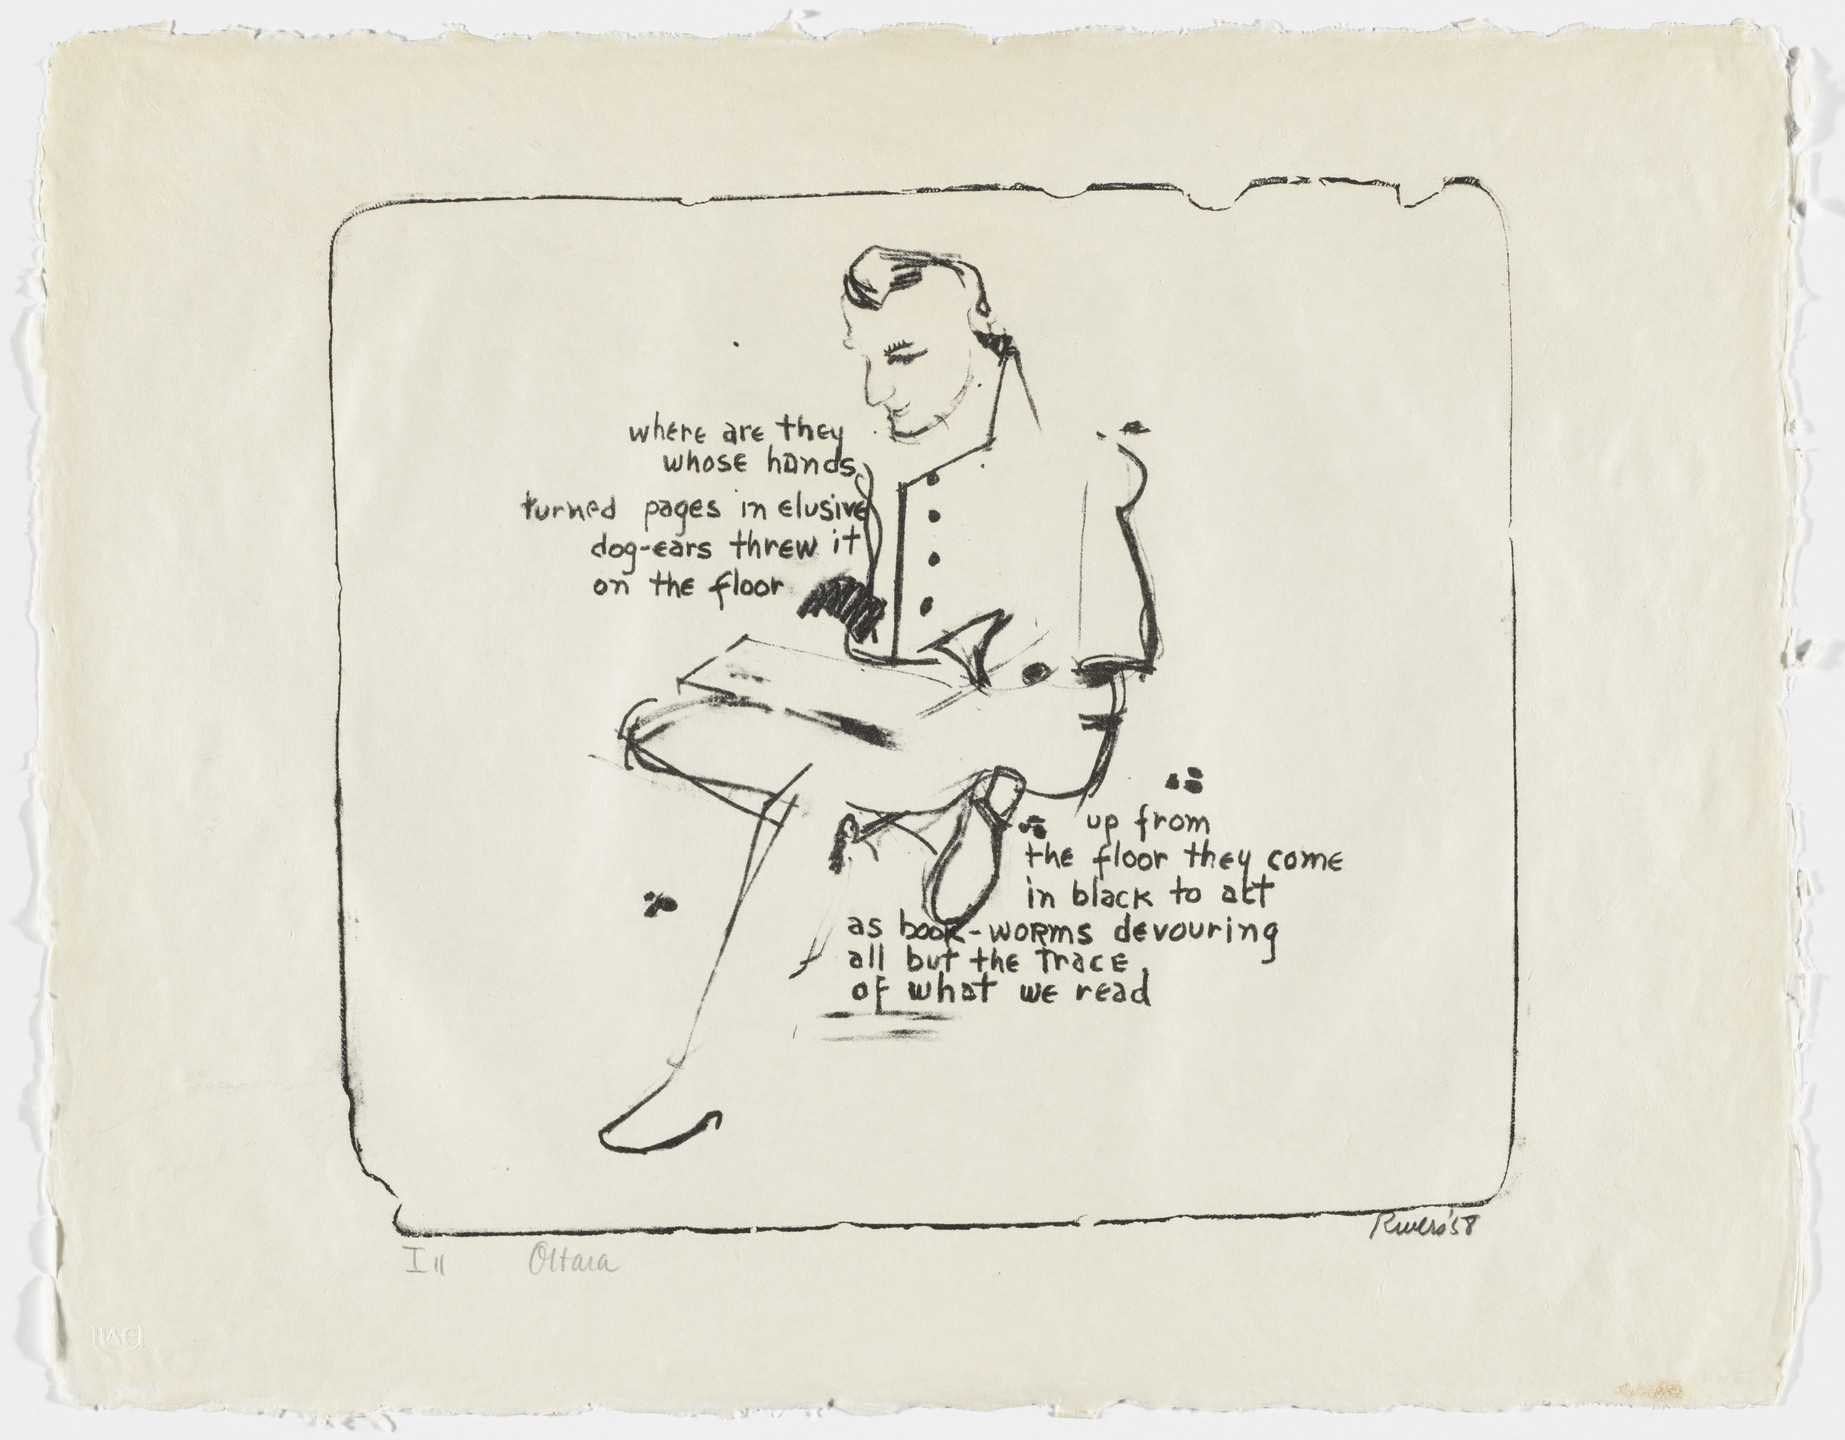 where are they
whose hands
turned pages in elusive
dog-ears threw it
on the floor
up from
the floor they come
in black to act
as book-worms devouring
all but the trace
of what we read
Rivers '58
I II
OHara